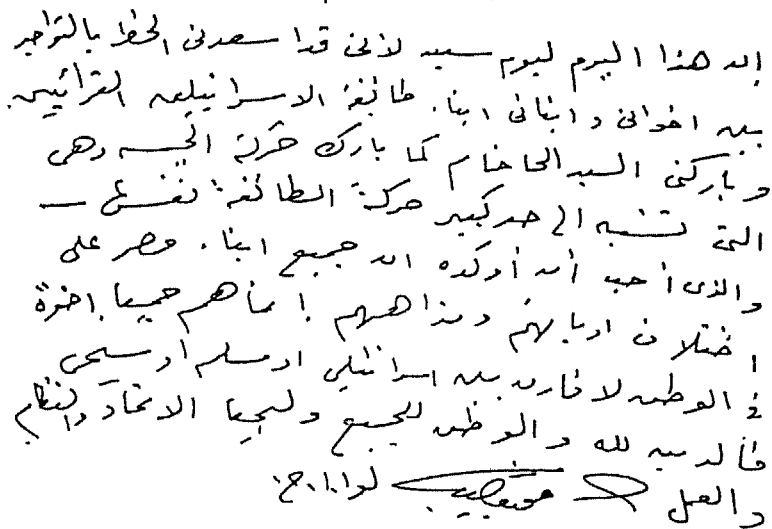 إن هذا اليوم ليوم سعيد لأنى قد اسعدنى الحظ بالتواجد
بين اخوانى وابنائى ابناء طائفة الاسرائيليين القرائيين
وباركنى السيد الحاخام كما بارك حركة الجيش وهى
التى تشبه الى حد كبير حركة الطائفة نفسها –
والذى أحب أن أؤكده ان جميع ابناء مصر على
اختلاف اديانهم ومذاهبهم إنما هم جميعا إخوة
فى الوطن لا فارق بين اسرائيلى او مسلم او مسيحى
فالدين لله والوطن للجميع وليحيا الاتحاد والنظام
والعمل محمد نجيب لواء ا.ح.